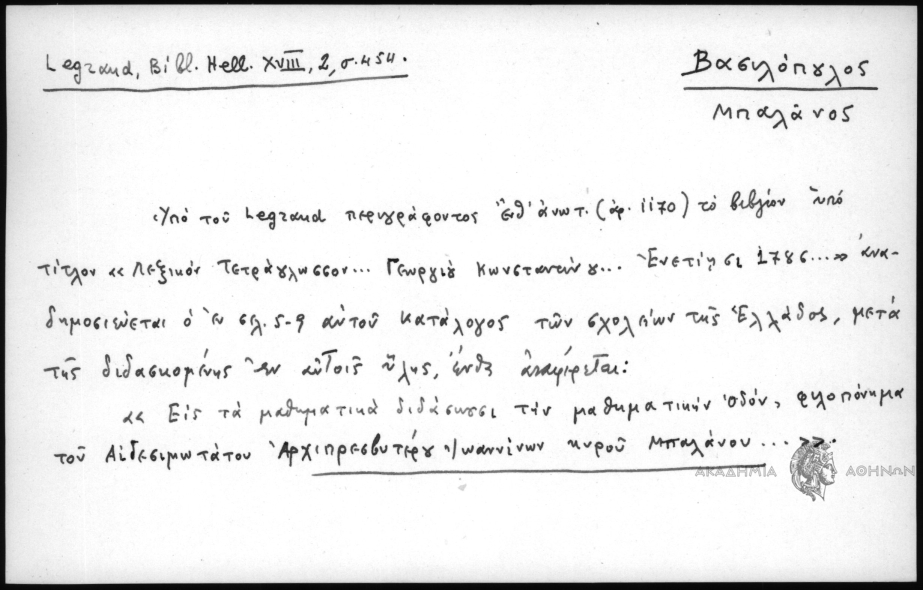 Legrand, Bibl. Hell. XVIII, 2, σ. 454.
Βασιλόπουλος
Μπαλάνος
Ὑπό τοῦ Legrand περιγράφοντος ἔνθ' ἀνωτ. (ἀρ. 1170) τό βιβλίον ὑπό
τίτλον «Λεξικόν Τετράγλωσσον... Γεωργίου Κωνσταντίνου... Ἐνετίησι 1786...» ἀνα-
δημοσιεύεται ὁ ἐν σελ. 5-9 αὐτοῦ κατάλογος τῶν σχολείων τῆς Ἑλλάδος, μετά
τῆς διδασκομένης ἐν αὐτοῖς ὕλης, ἔνθα ἀναφέρεται:
«Εἰς τά μαθηματικά διδάσκουσι τήν μαθηματικήν ὁδόν, φιλοπόνημα
τοῦ Αἰδεσιμωτάτου Ἀρχιπρεσβυτέρου Ἰωαννίνων κυροῦ Μπαλάνου...».
ΑΚΑΔΗΜΙΑ ΑΘΗΝΩΝ